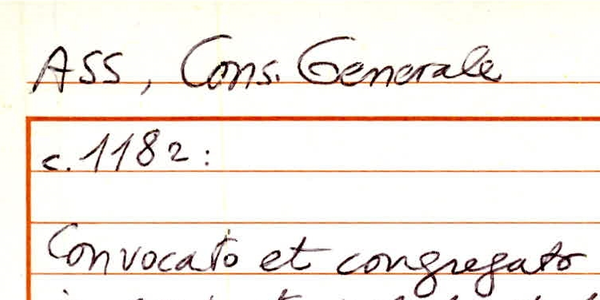 ASS, Cons. Generale
c. 1182:
Convocato et congregato